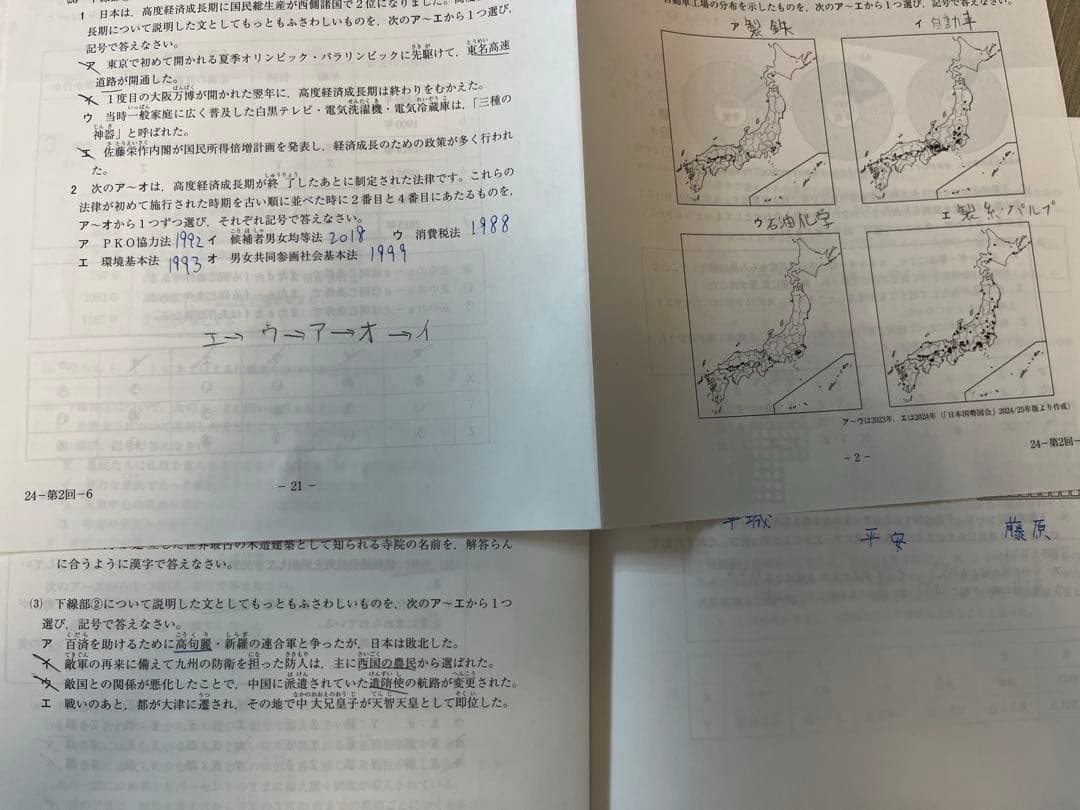 1 日本は，高度経済成長期に国民総生産が西側諸国で2位になりました。
長期について説明した文としてもっともふさわしいものを，次のア～エから1つ選び，
記号で答えなさい。
ア 東京で初めて開かれる夏季オリンピック・パラリンピックに先駆けて，東名高速
道路が開通した。
イ 1度目の大阪万博が開かれた翌年に，高度経済成長期は終わりをむかえた。
ウ 当時一般家庭に広く普及した白黒テレビ・電気洗濯機・電気冷蔵庫は，「三種の
神器」と呼ばれた。
エ 佐藤栄作内閣が国民所得倍増計画を発表し，経済成長のための政策が多く行われ
た。
2 次のア～オは，高度経済成長期が終了したあとに制定された法律です。これらの
法律が初めて施行された時期を古い順に並べた時に2番目と4番目にあたるものを，
ア～オから1つずつ選び，それぞれ記号で答えなさい。
ア PKO協力法 1992 イ 候補者男女均等法 2018 ウ 消費税法 1988
エ 環境基本法 1993 オ 男女共同参画社会基本法 1999
エ→ウ→ア→オ→イ
- 21 -
24-第2回-6
自動車工場の分布を示したものを，次のア～エから1つ選び，記号で答えなさい。
ア 製鉄
イ 自動車
ウ 石油化学
エ 製糸・パルプ
ア～ウは2023年、エは2024年（「日本国勢図会」2024/25年版より作成）
- 2 -
24-第2回-
平城
平安
藤原
した世界最古の木造建築として知られる寺院の名前を，解答らん
に合うように漢字で答えなさい。
(3) 下線部②について説明した文としてもっともふさわしいものを，次のア～エから1つ
選び，記号で答えなさい。
ア 百済を助けるために高句麗・新羅の連合軍と争ったが，日本は敗北した。
イ 敵軍の再来に備えて九州の防衛を担った防人は，主に西国の農民から選ばれた。
ウ 敵国との関係が悪化したことで，中国に派遣されていた遣隋使の航路が変更された。
エ 戦いのあと，都が大津に遷され，その地で中大兄皇子が天智天皇として即位した。